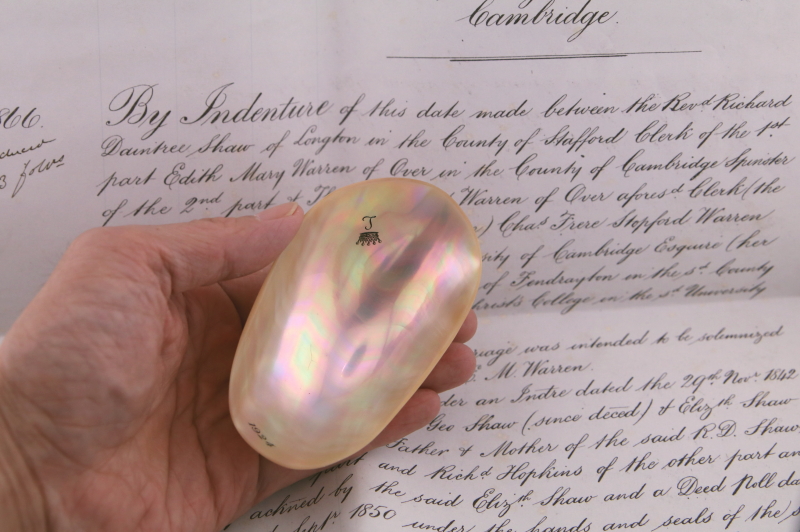 Cambridge.
866.
By Indenture of this date made between the Revd Richard
Daintree Shaw of Longton in the County of Stafford Clerk of the 1st
part Edith Mary Warren of Over in the County of Cambridge Spinster
of the 2nd part & Warren of Over aforesd Clerk (the
Chas Frere Stopford Warren
sity of Cambridge Esquire (her
of Fendrayton in the sd County
hrist's College in the sd University
riage was intended to be solemnized
M. Warren.
der an Indre dated the 29th Novr 1842
Geo Shaw (since deced) & Elizth Shaw
Father & Mother of the said R. D. Shaw
part and Richd Hopkins of the other part an
ached by the said Elizth Shaw and a Deed Poll da
Septr 1850 under the hands and seals of the s
3 folios
T